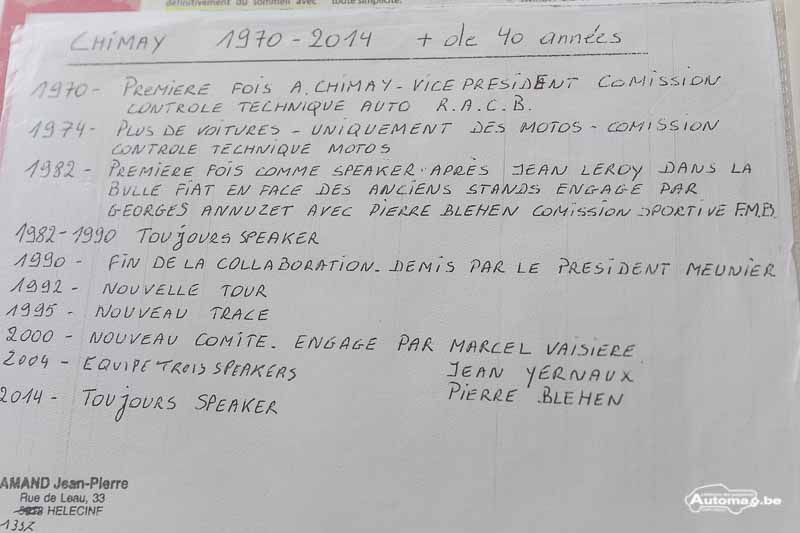 définitivement du sommeil avec toute simplicité.
CHIMAY 1970 - 2014 + de 40 années
1970 - PREMIERE FOIS A. CHIMAY - VICE PRESIDENT COMISSION
CONTROLE TECHNIQUE AUTO R.A.C.B.
1974 - PLUS DE VOITURES - UNIQUEMENT DES MOTOS - COMISSION
CONTROLE TECHNIQUE MOTOS
1982 - PREMIERE FOIS COMME SPEAKER. APRÈS JEAN LEROY DANS LA
BULLE FIAT EN FACE DES ANCIENS STANDS ENGAGE PAR
GEORGES ANNUZET AVEC PIERRE BLEHEN COMISSION SPORTIVE F.M.B.
1982-1990 TOUJOURS SPEAKER
1990 - FIN DE LA COLLABORATION. DEMIS PAR LE PRESIDENT MEUNIER
1992 - NOUVELLE TOUR
1995 - NOUVEAU TRACE
2000 - NOUVEAU COMITE. ENGAGE PAR MARCEL VAISIERE
2004 - EQUIPE TROIS SPEAKERS JEAN YERNAUX
PIERRE BLEHEN
2014 - TOUJOURS SPEAKER
AMAND Jean-Pierre
Rue de Leau, 33
HELECINE
1357
Automag.be